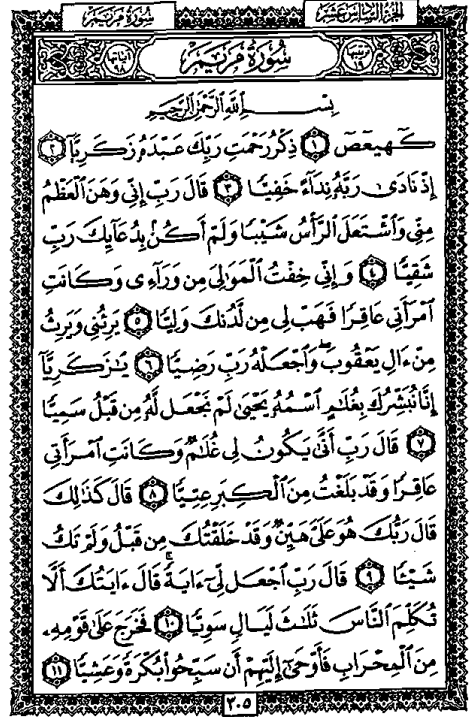 سُورَةُ مَرْيَم الجُزْءُ السَّادِسَ عَشَر
سُورَةُ مَرْيَم
بِسْمِ ٱللَّهِ ٱلرَّحْمَٰنِ ٱلرَّحِيمِ
كٓهيعٓصٓ ١ ذِكْرُ رَحْمَتِ رَبِّكَ عَبْدَهُۥ زَكَرِيَّآ ٢
إِذْ نَادَىٰ رَبَّهُۥ نِدَآءً خَفِيًّا ٣ قَالَ رَبِّ إِنِّي وَهَنَ ٱلْعَظْمُ
مِنِّي وَٱشْتَعَلَ ٱلرَّأْسُ شَيْبًا وَلَمْ أَكُنۢ بِدُعَآئِكَ رَبِّ
شَقِيًّا ٤ وَإِنِّي خِفْتُ ٱلْمَوَٰلِيَ مِن وَرَآءِي وَكَانَتِ
ٱمْرَأَتِي عَاقِرًا فَهَبْ لِي مِن لَّدُنكَ وَلِيًّا ٥ يَرِثُنِي وَيَرِثُ
مِنْ ءَالِ يَعْقُوبَ ۖ وَٱجْعَلْهُ رَبِّ رَضِيًّا ٦ يَٰزَكَرِيَّآ
إِنَّا نُبَشِّرُكَ بِغُلَٰمٍ ٱسْمُهُۥ يَحْيَىٰ لَمْ نَجْعَل لَّهُۥ مِن قَبْلُ سَمِيًّا
٧ قَالَ رَبِّ أَنَّىٰ يَكُونُ لِي غُلَٰمٌ وَكَانَتِ ٱمْرَأَتِي
عَاقِرًا وَقَدْ بَلَغْتُ مِنَ ٱلْكِبَرِ عِتِيًّا ٨ قَالَ كَذَٰلِكَ
قَالَ رَبُّكَ هُوَ عَلَىَّ هَيِّنٌ وَقَدْ خَلَقْتُكَ مِن قَبْلُ وَلَمْ تَكُ
شَيْـًٔا ٩ قَالَ رَبِّ ٱجْعَل لِّيٓ ءَايَةً ۚ قَالَ ءَايَتُكَ أَلَّا
تُكَلِّمَ ٱلنَّاسَ ثَلَٰثَ لَيَالٍ سَوِيًّا ١٠ فَخَرَجَ عَلَىٰ قَوْمِهِۦ
مِنَ ٱلْمِحْرَابِ فَأَوْحَىٰٓ إِلَيْهِمْ أَن سَبِّحُوا۟ بُكْرَةً وَعَشِيًّا ١١
٣٠٥